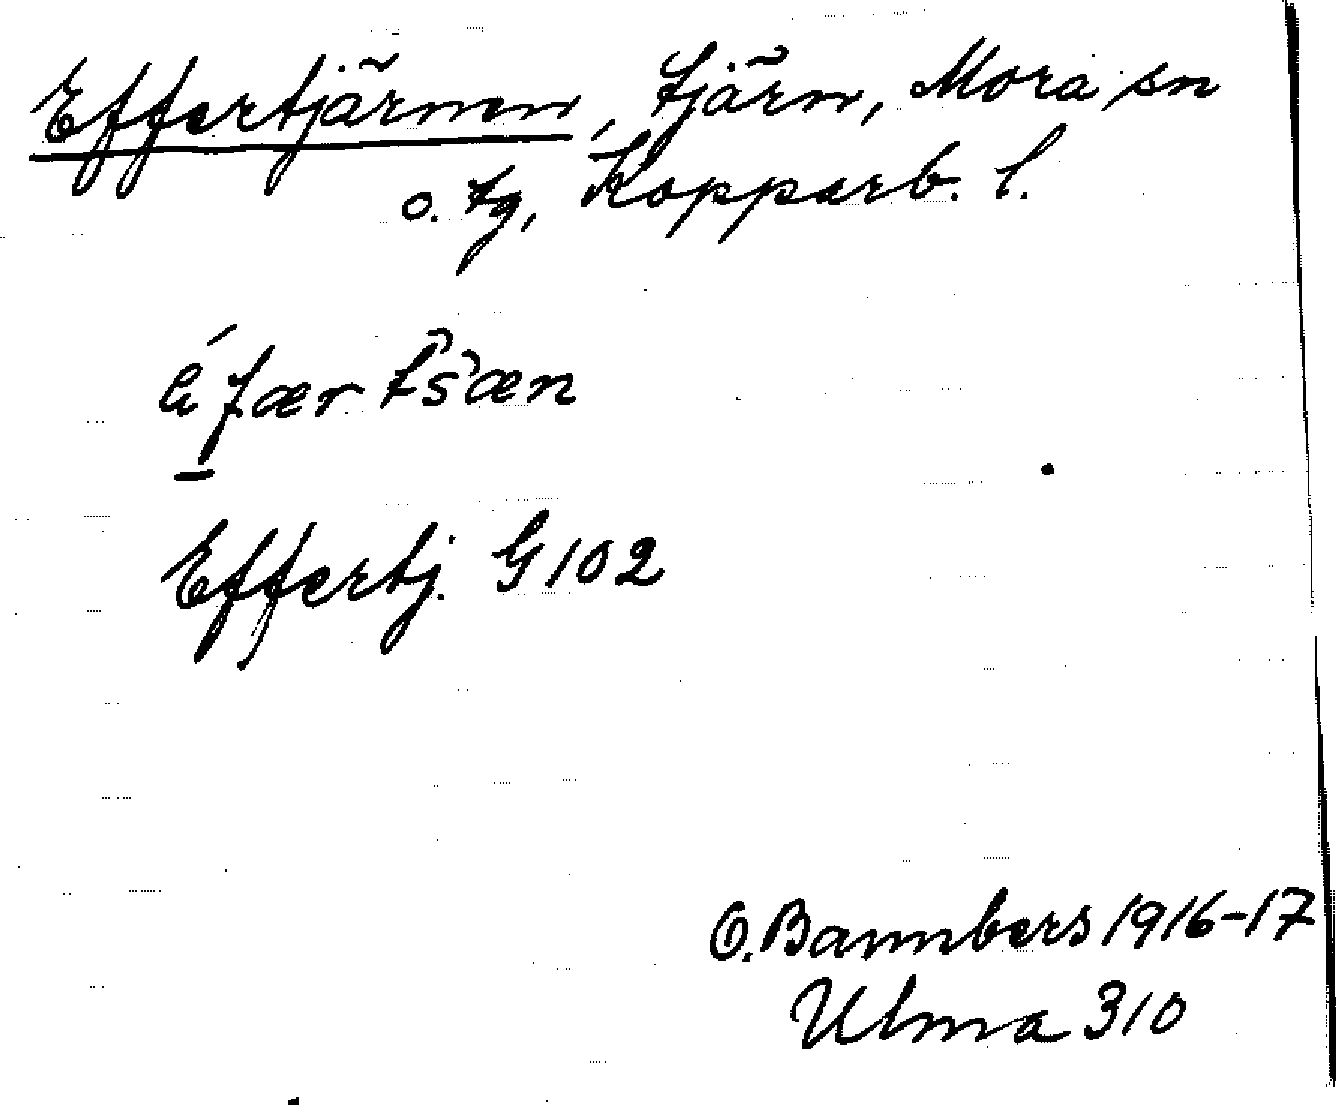 Effertjärnen, tjärn, Mora sn
o. tg, Kopparb. l.
Effertj. G 102
O. Bannbers 1916-17
Ulma 310